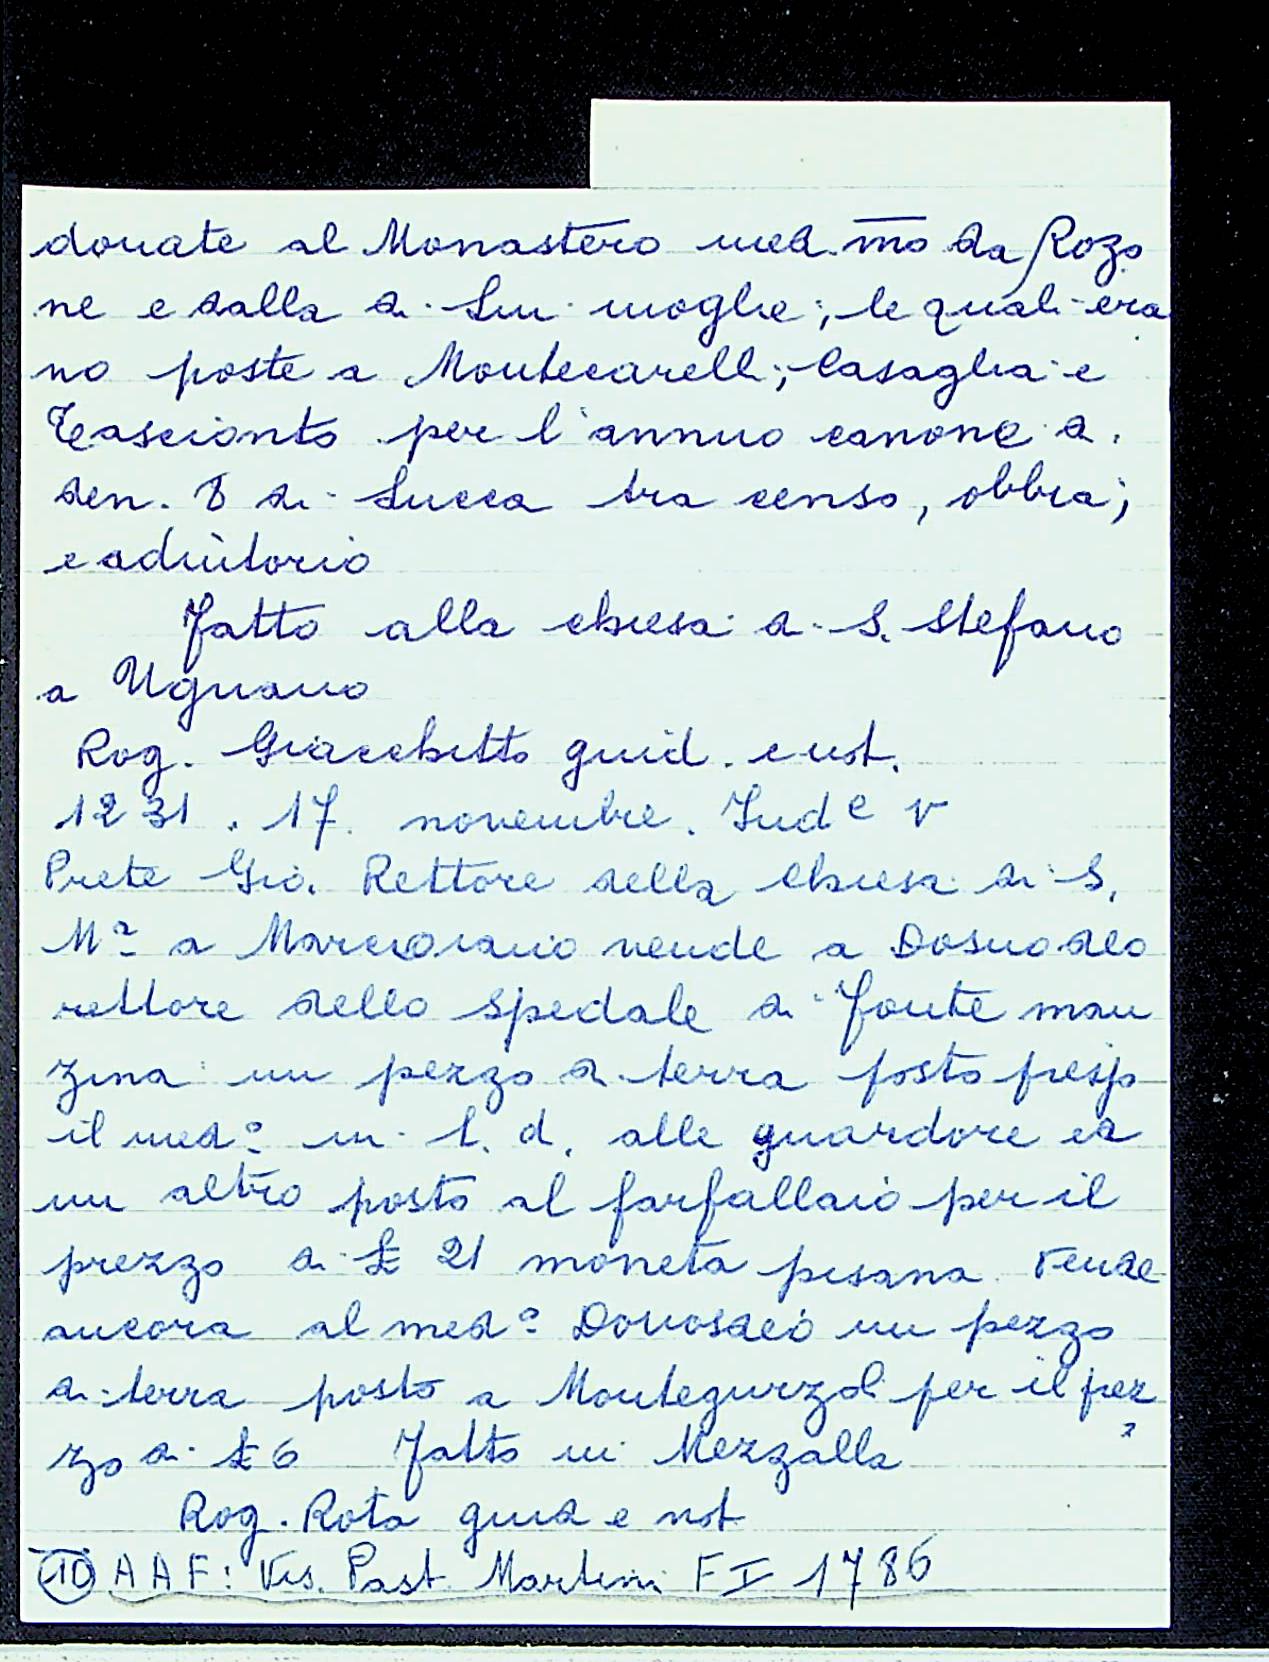 donate al Monastero med. mo da Rozo
ne e dalla di lui moglie; le quali era
no poste a Montecarelli, Casaglia e
Casscionto per l'annuo canone di
den. 8 di Lucca tra censo, obbia;
e adiùtorio
Fatto alla chiesa di S. Stefano
a Ugnano
Rog. Giacchetto guid. e not.
1231. 17. novembre. Ind e V
Prete Gio. Rettore della Chiesa di S.
Mª a Marcoiano vende a Dosnodeo
rettore dello spedale di Fonte man
zina un pezzo di terra posto presso
il medº in l. d. alle guardore ed
un altro posto al farfallaio per il
prezzo di £ 21 moneta pisana. Vende
ancora al medº Donosdeo un pezzo
di terra posto a Montegurzoli per il prez
zo di £ 6 Fatto in Mezzalla
Rog. Rota guid e not
10 A A F: Vis. Past. Martini F I 1786